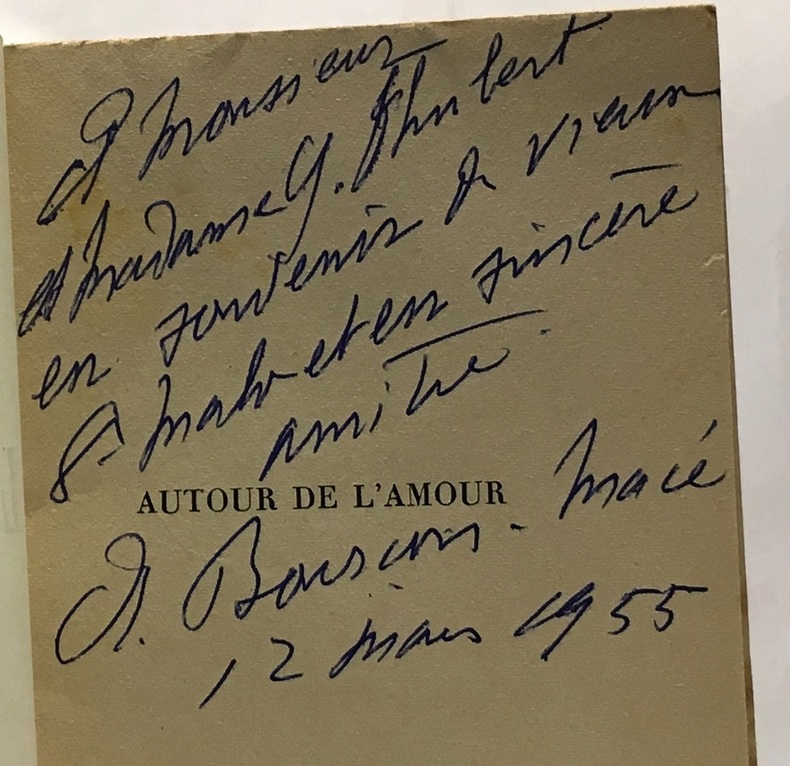 A Monsieur
et Madame G. Ahubert
en souvenir de vieux
St Malo et en sincère
amitié.
AUTOUR DE L'AMOUR
A. Macé
12 mars 1955